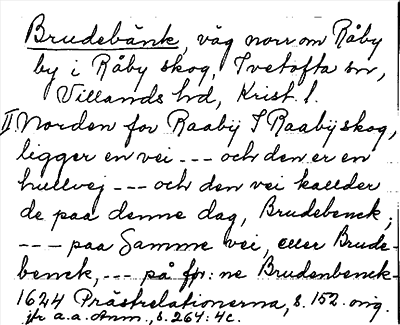 Brudebänk, väg norr om Råby
by i Råby skog, Ivetofta sn,
Villands hd, Krist. l.
II Norden for Raabÿ I Raabÿskog,
ligger en vei --- och den er en
hullvej --- och den vei kallder
de paa denne dag, Brudebenck;
--- paa Samme vei, eller Brude-
benck, --- på för: ne Brudenbenck-
1624 Prästrelationerna, s. 152. orig.
jfr a.a. Anm., s. 264: 4c.